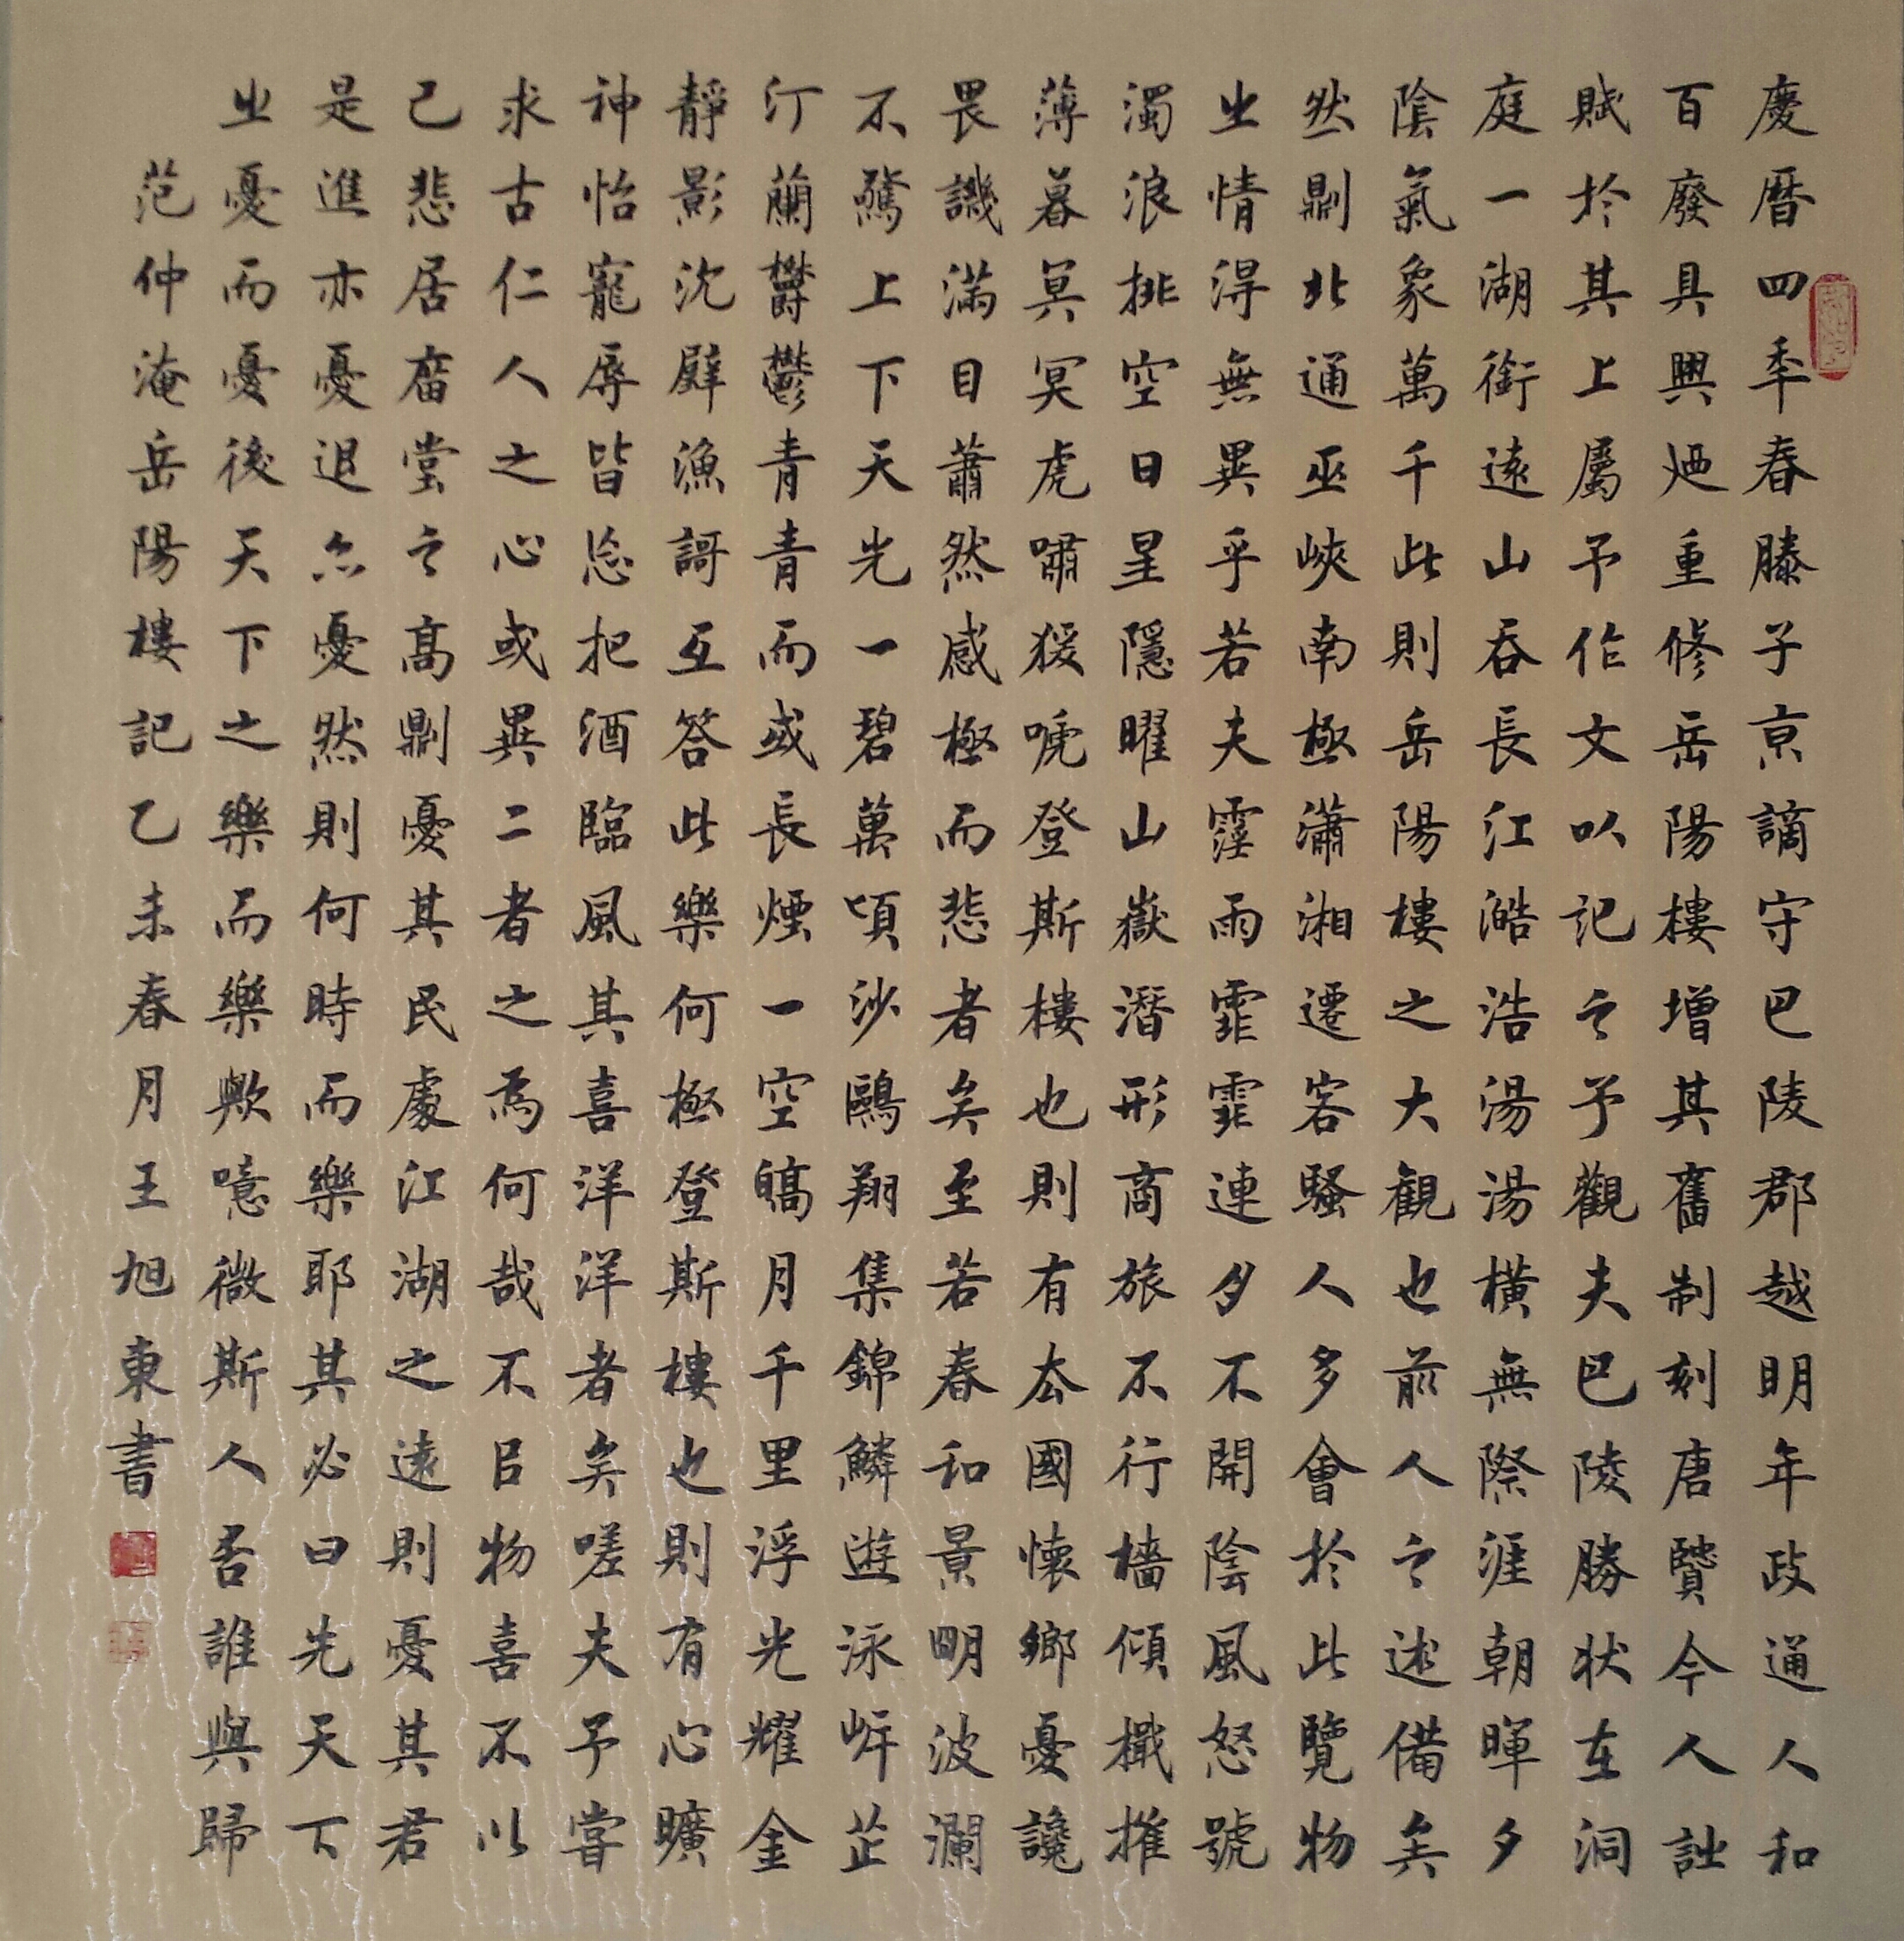 慶曆四秊春滕子亰謫守巴陵郡越明年政通人和
百廢具興迺重修岳陽樓增其舊制刻唐賢今人詩
賦於其上屬予作文以記之予觀夫巴陵勝狀在洞
庭一湖銜遠山吞長江澔浩湯湯橫無際涯朝暉夕
陰氣象萬千此則岳陽樓之大觀也前人之述備矣
然則北通巫峽南極瀟湘遷客騷人多會於此覽物
之情得無異乎若夫霪雨霏霏連月不開陰風怒號
濁浪排空日星隱曜山嶽潛形商旅不行檣傾檝摧
薄暮冥冥虎嘯猨唬登斯樓也則有去國懷鄉憂讒
畏譏滿目蕭然感極而悲者矣至若春和景明波瀾
不驚上下天光一碧萬頃沙鷗翔集錦鱗遊泳岸芷
汀蘭鬱鬱青青而或長煙一空皜月千里浮光耀金
靜影沈璧漁謌互答此樂何極登斯樓也則有心曠
神怡寵辱皆忘把酒臨風其喜洋洋者矣嗟夫予嘗
求古仁人之心或異二者之為何哉不㠯物喜不以
己悲居廟堂之高則憂其民處江湖之遠則憂其君
是進亦憂退亦憂然則何時而樂耶其必曰先天下
之憂而憂後天下之樂而樂歟噫微斯人吾誰與歸
范仲淹岳陽樓記乙未春月王旭東書